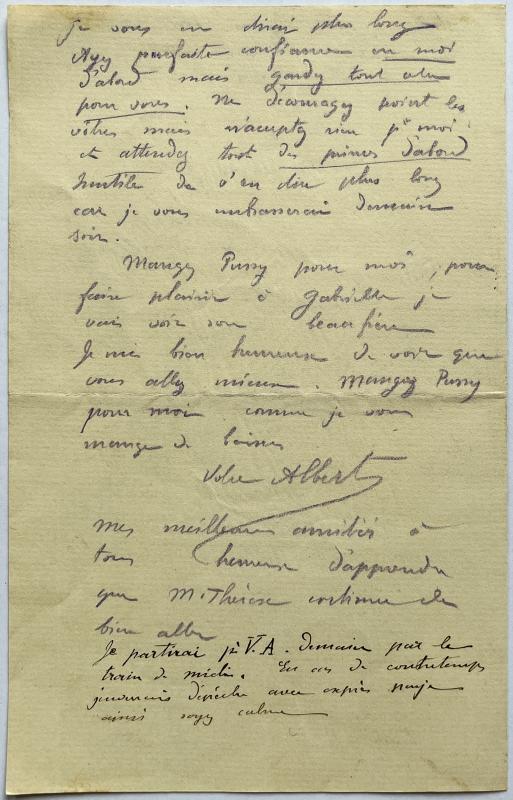 je vous en dirai plus long
Ayez parfaite confiance en moi
d'abord mais gardez tout cela
pour vous. Ne découragez point les
vôtres mais n'acceptez rien pr moi
et attendez tout des princes d'abord
Inutile de s'en dire plus long
car je vous embrasserai demain
soir.
Mangez Pussy pour moi, pour
faire plaisir à Gabrielle je
vais voir son beau frère
Je suis bien heureuse de voir que
vous allez mieux. Mangez Pussy
pour moi comme je vous
mange de baisers
Votre Albert
Mes meilleures amitiés à
tous heureuse d'apprendre
que M. Thérèse continue de
bien aller
Je partirai pr V.A. demain par le
train de midi. En cas de contretemps
j'enverrais dépêche avec exprès payé
ainsi soyez calme